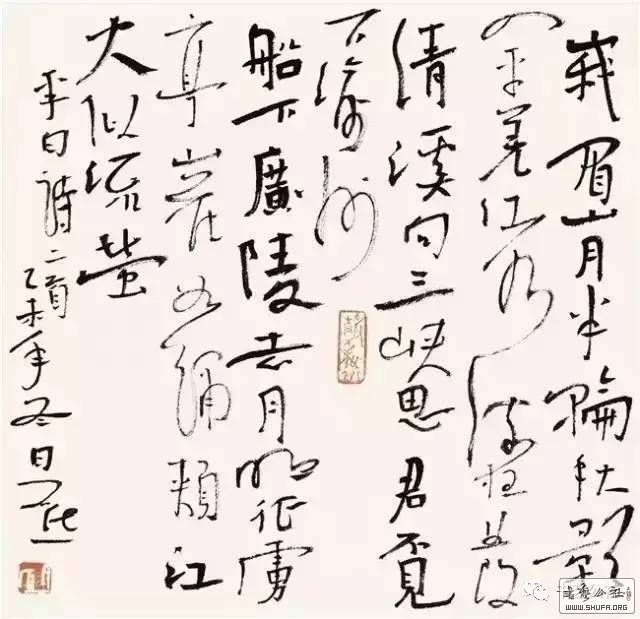 峩眉山月半輪秋影
入平羌江水流夜發
清溪向三峽思君不見
下渝州
船下廣陵去月明征虜
亭山花如繡頰江
火似流螢
李白詩二首乙未年冬日
WWW.SHUFA.ORG